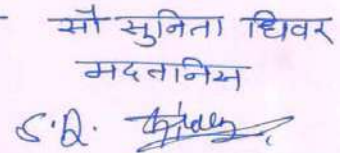 सौ सुनिता धिवर
मदतनिस
S.D.